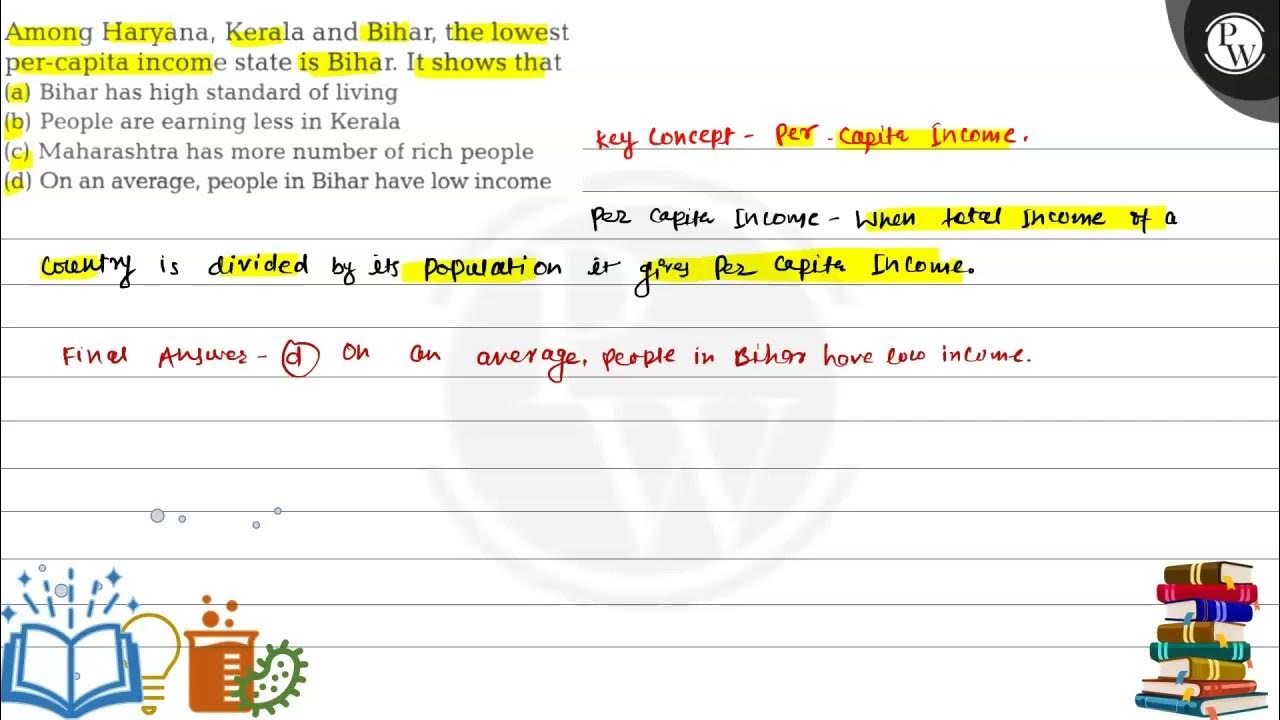 Among Haryana, Kerala and Bihar, the lowest
per-capita income state is Bihar. It shows that
(a) Bihar has high standard of living
(b) People are earning less in Kerala
(c) Maharashtra has more number of rich people
(d) On an average, people in Bihar have low income
PW
Key Concept - Per - Capita Income.
Per Capita Income - When total Income of a
country is divided by its population it gives Per Capita Income.
Final Answer - (d) On an average, people in Bihar have low income.
PW